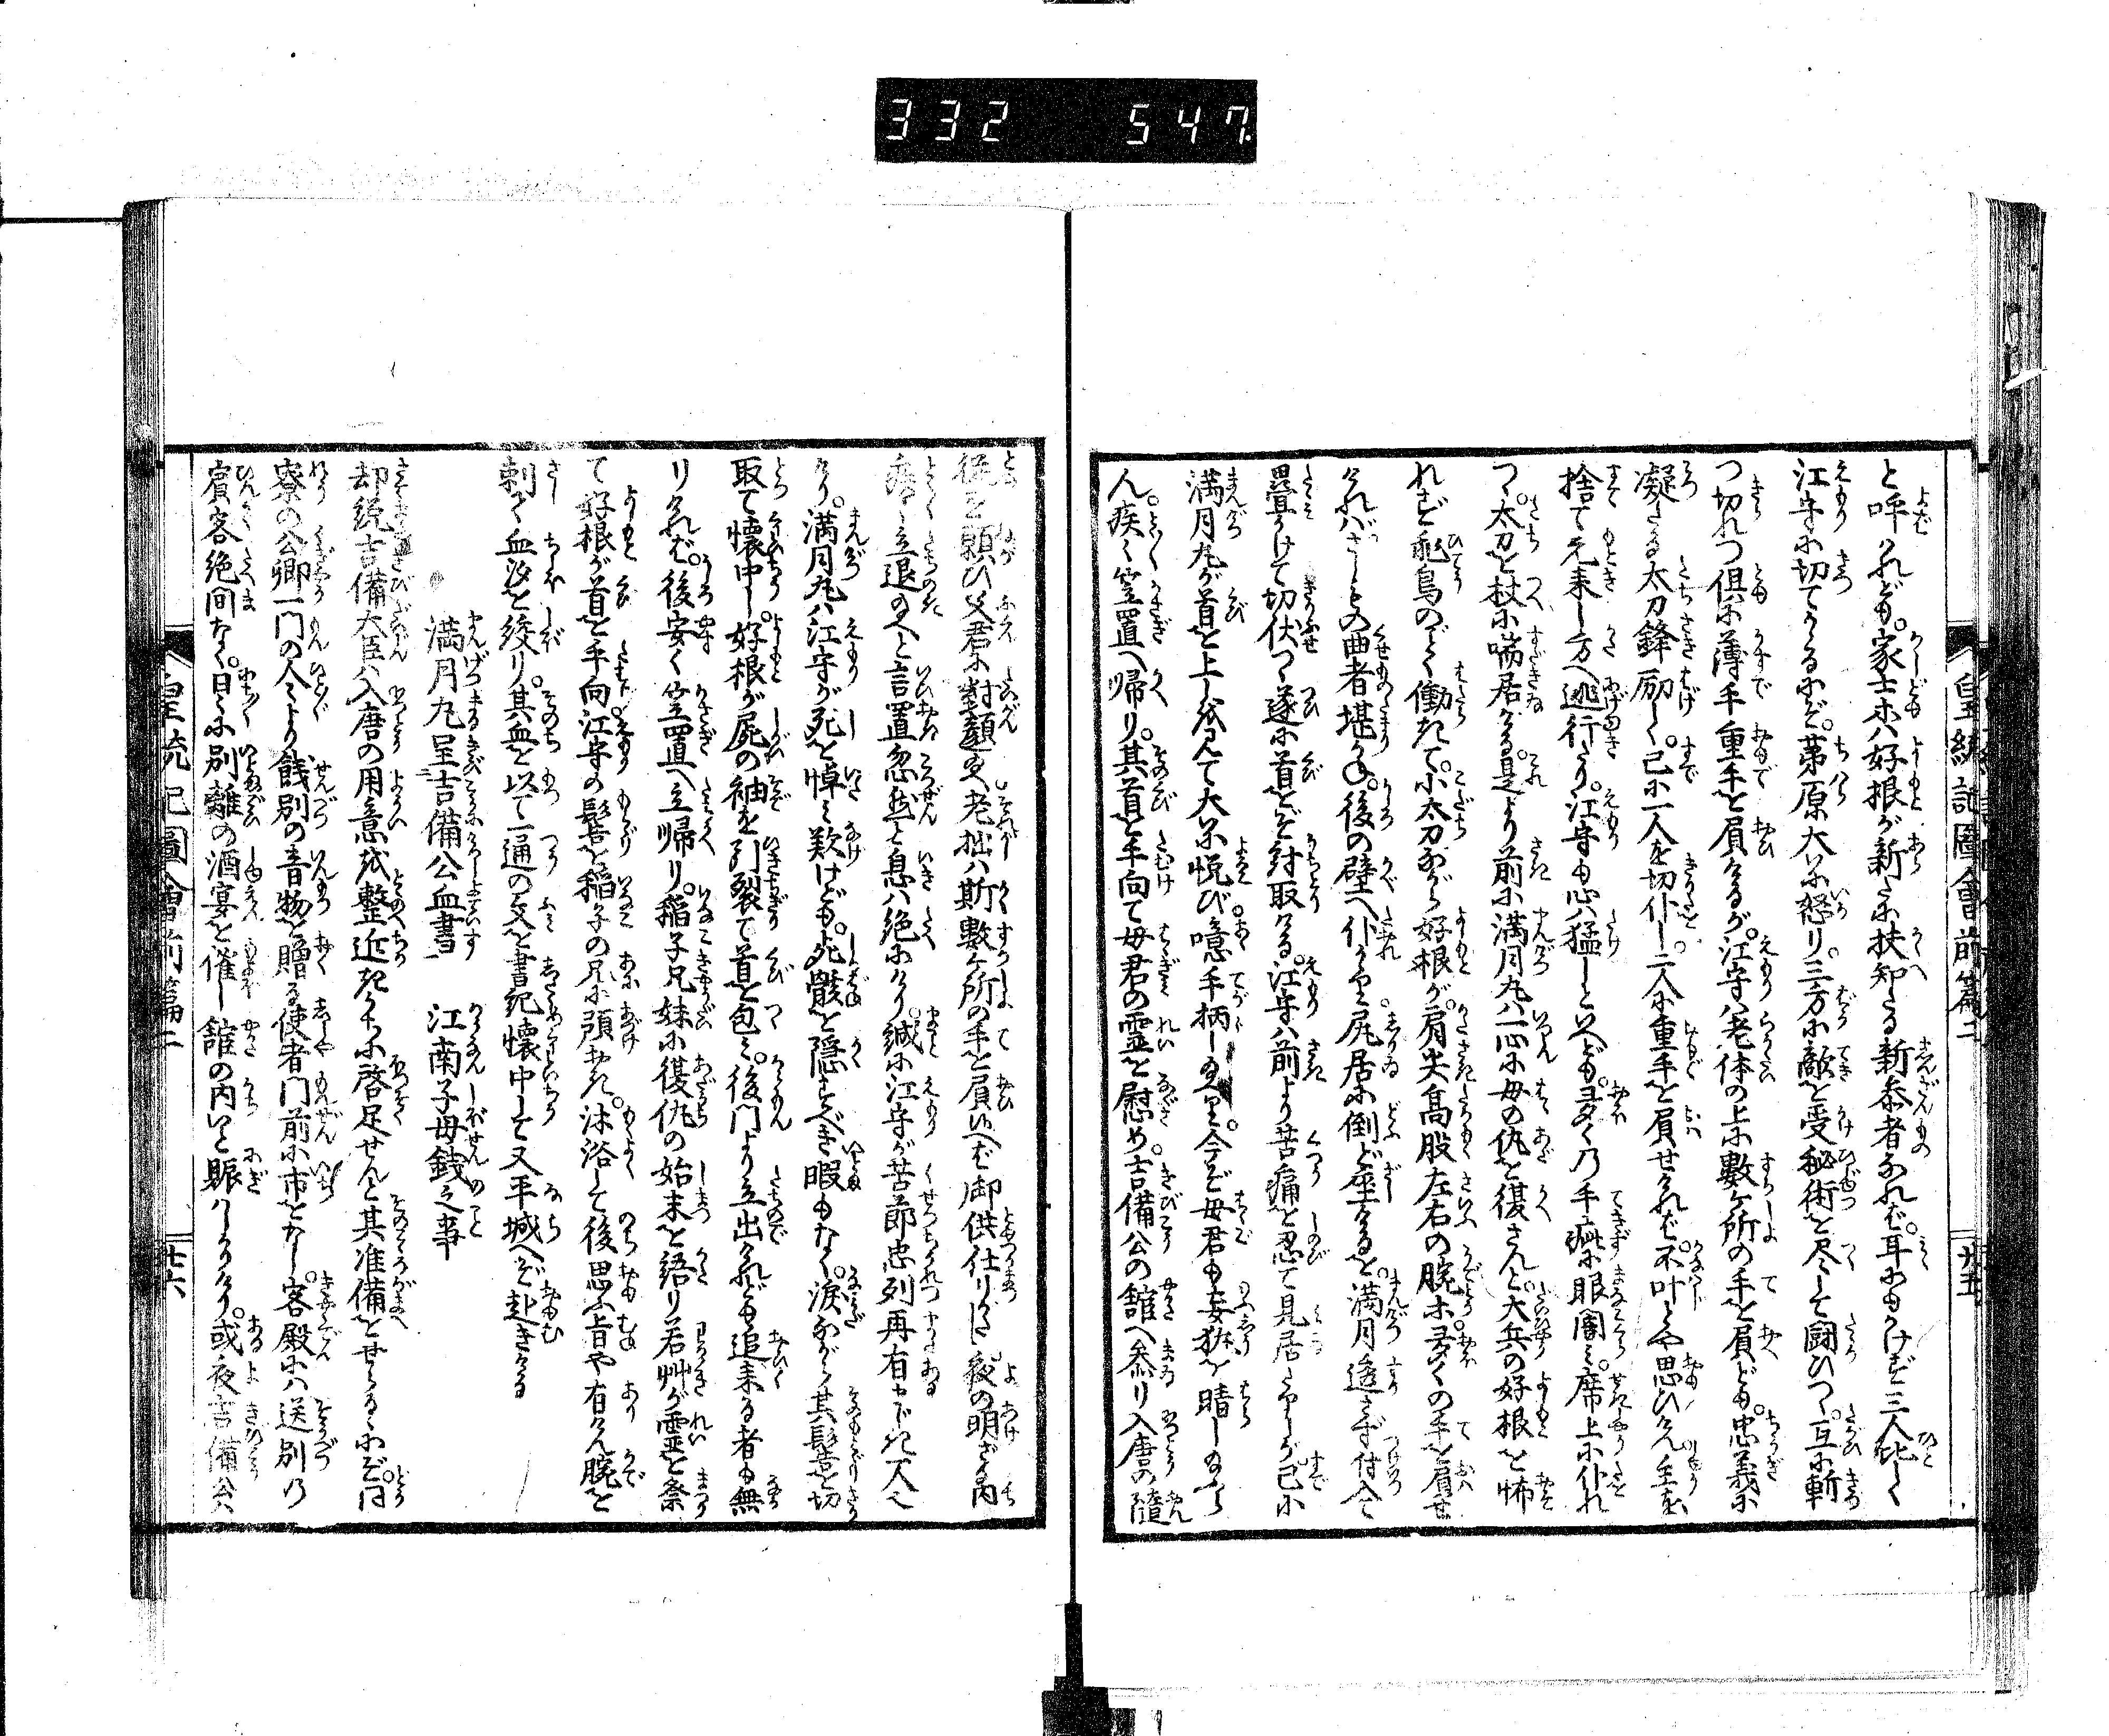 332 547.
皇統記圖會前篇二
廿五
と呼けれども。家士等ハ好根が新に扶知する新参者なれバ。耳にもかけず三人斉しく
江守に切てかゝるにぞ。茅原大に怒り。三方に敵を受秘術を尽して闘ひつゝ。互に斬
つ切れつ倶に薄手重手を負けるが。江守ハ老体の上に數ケ所の手を負ども。忠義に
凝たる太刀鋒励しく。已に一人を切仆し。二人に重手を負せけれバ。不叶とや思ひけん主を
捨て元来し方へ逃行たり。江守も心ハ猛しといへども。多くの手疵に眼闇ミ。席上に仆れ
つゝ。太刀を杖に喘居ける。是より前に満月丸ハ一心に母の仇を復さんと。大兵の好根を怖
れず飛鳥のごとく働きて。小太刀ながら好根が。肩尖高股左右の腕に多くの手を負せ
けれバさしもの曲者堪かね。後の壁へ仆かゝり。尻居に倒ど座するを。満月透さず付入て
疊かけて切伏つゝ遂に首をぞ討取ける。江守ハ前より苦痛を忍て見居たりしが已に
満月丸が首を上しを見て大に悦び。噫手柄し給り。今ぞ母君も妄執を晴し給ふらん
ん。疾く笠置へ帰り。其首を手向て母君の霊を慰め。吉備公の舘へ参り入唐の隨
從を願ひ父君に対顔し給へ老拙ハ斯數ケ所の手を負候へバ御供仕りがたし夜の明ざる内
疾く立退給へと言置忽然と息ハ絶にけり。誠に江守が苦節忠列再有まじき人也
けり。満月丸ハ江守が死を悼ミ歎けども。死骸を隠すべき暇もなく。涙ながら其髻を切
取て懐中し。好根が屍の袖を引裂て首を包ミ。後門より立出けれども追来る者も無
りけれバ。後安く笠置へ立帰り。稲子兄妹に復仇の始末を語り若艸が霊を祭
て好根が首を手向。江守の髻を稲子の兄に預おき。沐浴して後思ふ旨や有けん腕を
刺て血汐を絞り。其血を以て一通の文を書記懐中して又平城へぞ赴きける
満月丸呈吉備公血書 江南子母銭之事
却説吉備大臣ハ入唐の用意を整近きうちに啓足せんと其准備をせらるゝにぞ。同
寮の公卿一門の人々より餞別の音物を贈る使者門前に市をなし。客殿にハ送別の
賓客絶間なく。日々に別離の酒宴を催し舘の内いと賑ハしかりけり。或夜吉備公ハ
皇統記圖會前篇二
廿六